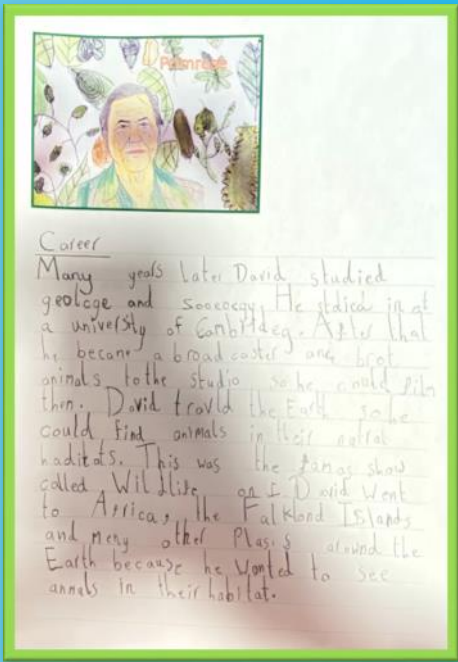 Primrose
Career
Many years Later David studied
geologe and sooeocgy. He stdied in at
a university of Cambrideg. After that
he became a broadcaster and brot
animals to the studio so he could film
them. David travld the Earth so he
could find animals in their natral
haditats. This was the famas show
called Wildlife on 1. David went
to Africa, the Falklond Islands
and meny other Plases around the
Earth because he wanted to see
anmals in their habitat.